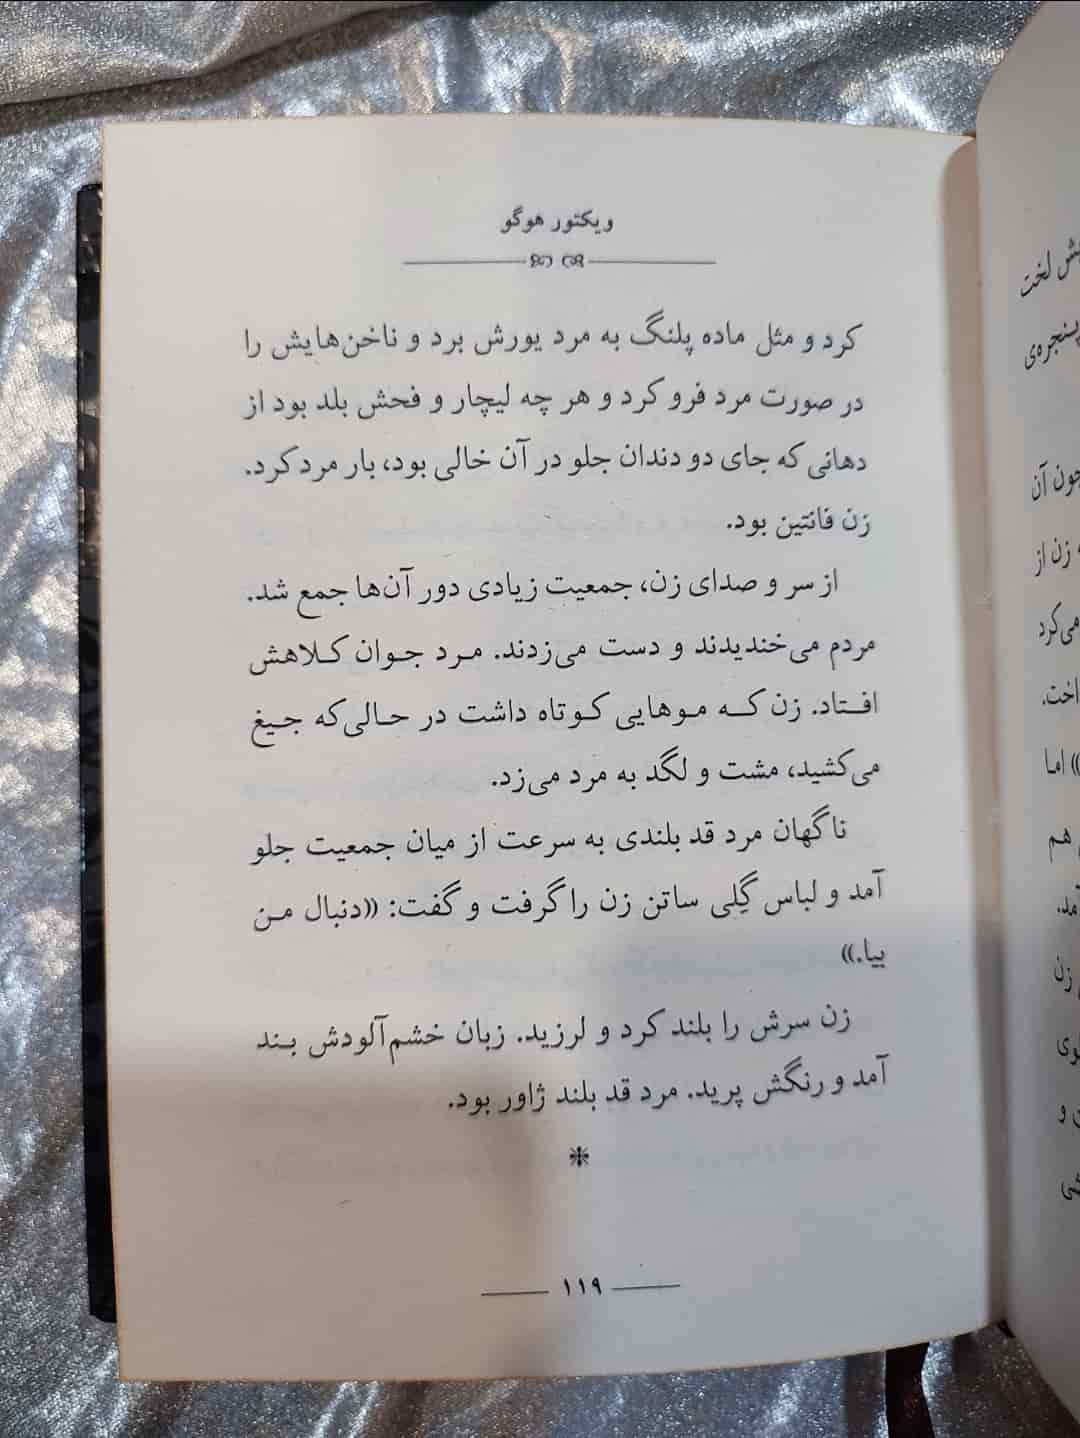 ویکتور هوگو
کرد و مثل ماده پلنگ به مرد یورش برد و ناخن‌هایش را
در صورت مرد فرو کرد و هر چه لیچار و فحش بلد بود از
دهانی که جای دو دندان جلو در آن خالی بود، بار مرد کرد.
زن فانتین بود.
از سر و صدای زن، جمعیت زیادی دور آن‌ها جمع شد.
مردم می‌خندیدند و دست می‌زدند. مرد جوان کلاهش
افتاد. زن که موهایی کوتاه داشت در حالی‌که جیغ
می‌کشید، مشت و لگد به مرد می‌زد.
ناگهان مرد قد بلندی به سرعت از میان جمعیت جلو
آمد و لباس گِلی ساتن زن را گرفت و گفت: «دنبال من
بیا.»
زن سرش را بلند کرد و لرزید. زبان خشم‌آلودش بند
آمد و رنگش پرید. مرد قد بلند ژاور بود.
۱۱۹
لخت
پنجره‌ی
چون آن
زن از
می‌کرد
اما
هم
زن
و